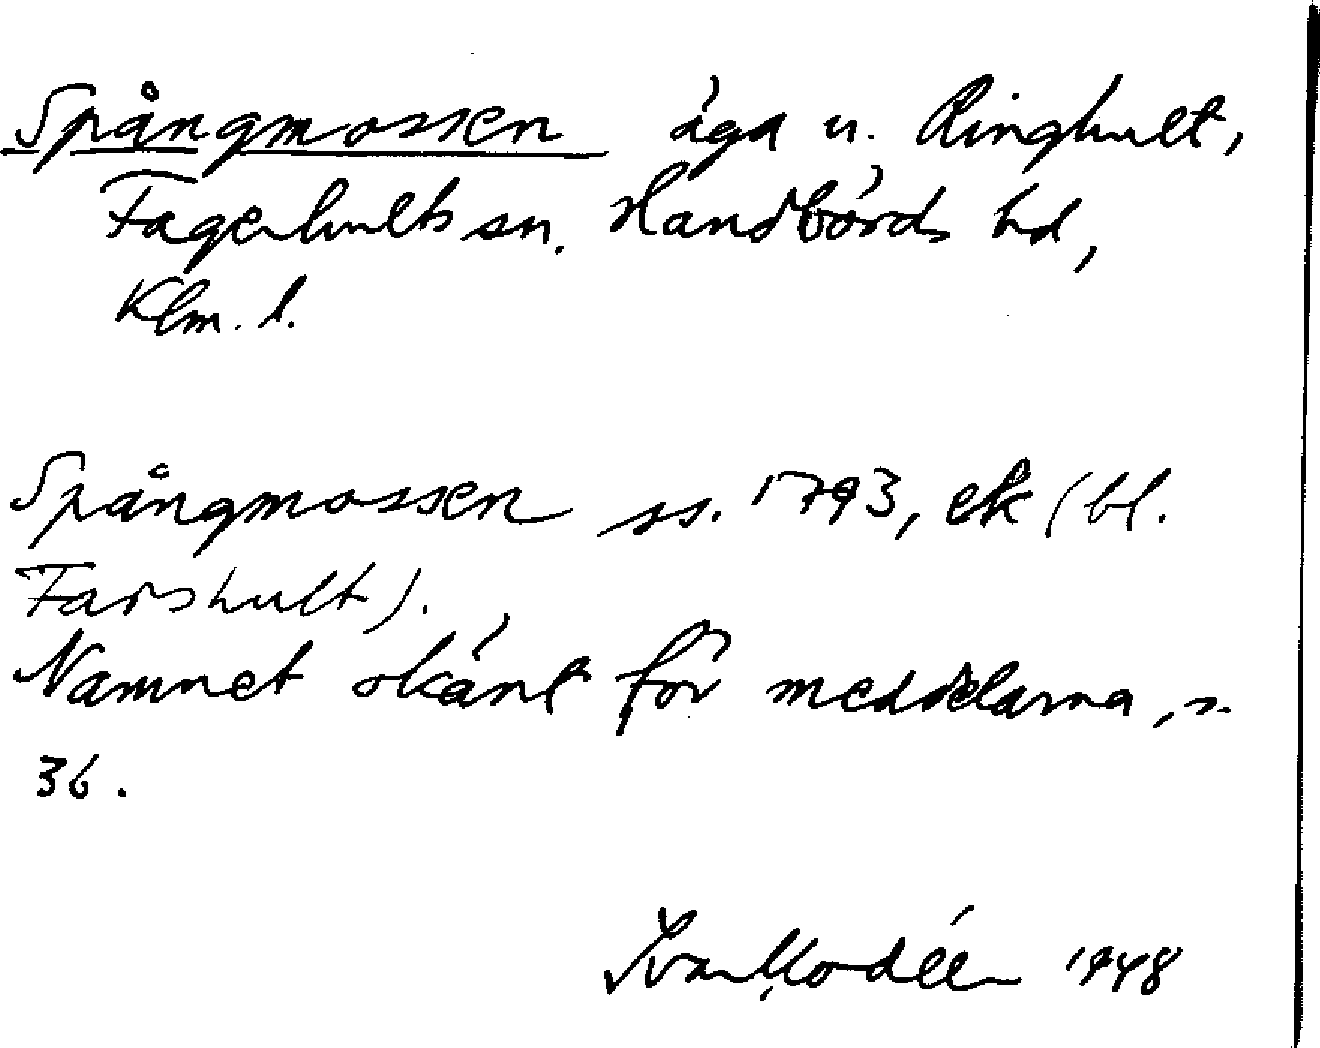 Spångmossen äga u. Ringhult,
Fagerhults sn. Handbörds hd,
Klm. l.
Spångmossen ss. 1793, ek (bl.
Farshult).
Namnet okänt för meddelarna, s.
36.
Ivar Modéer 1948